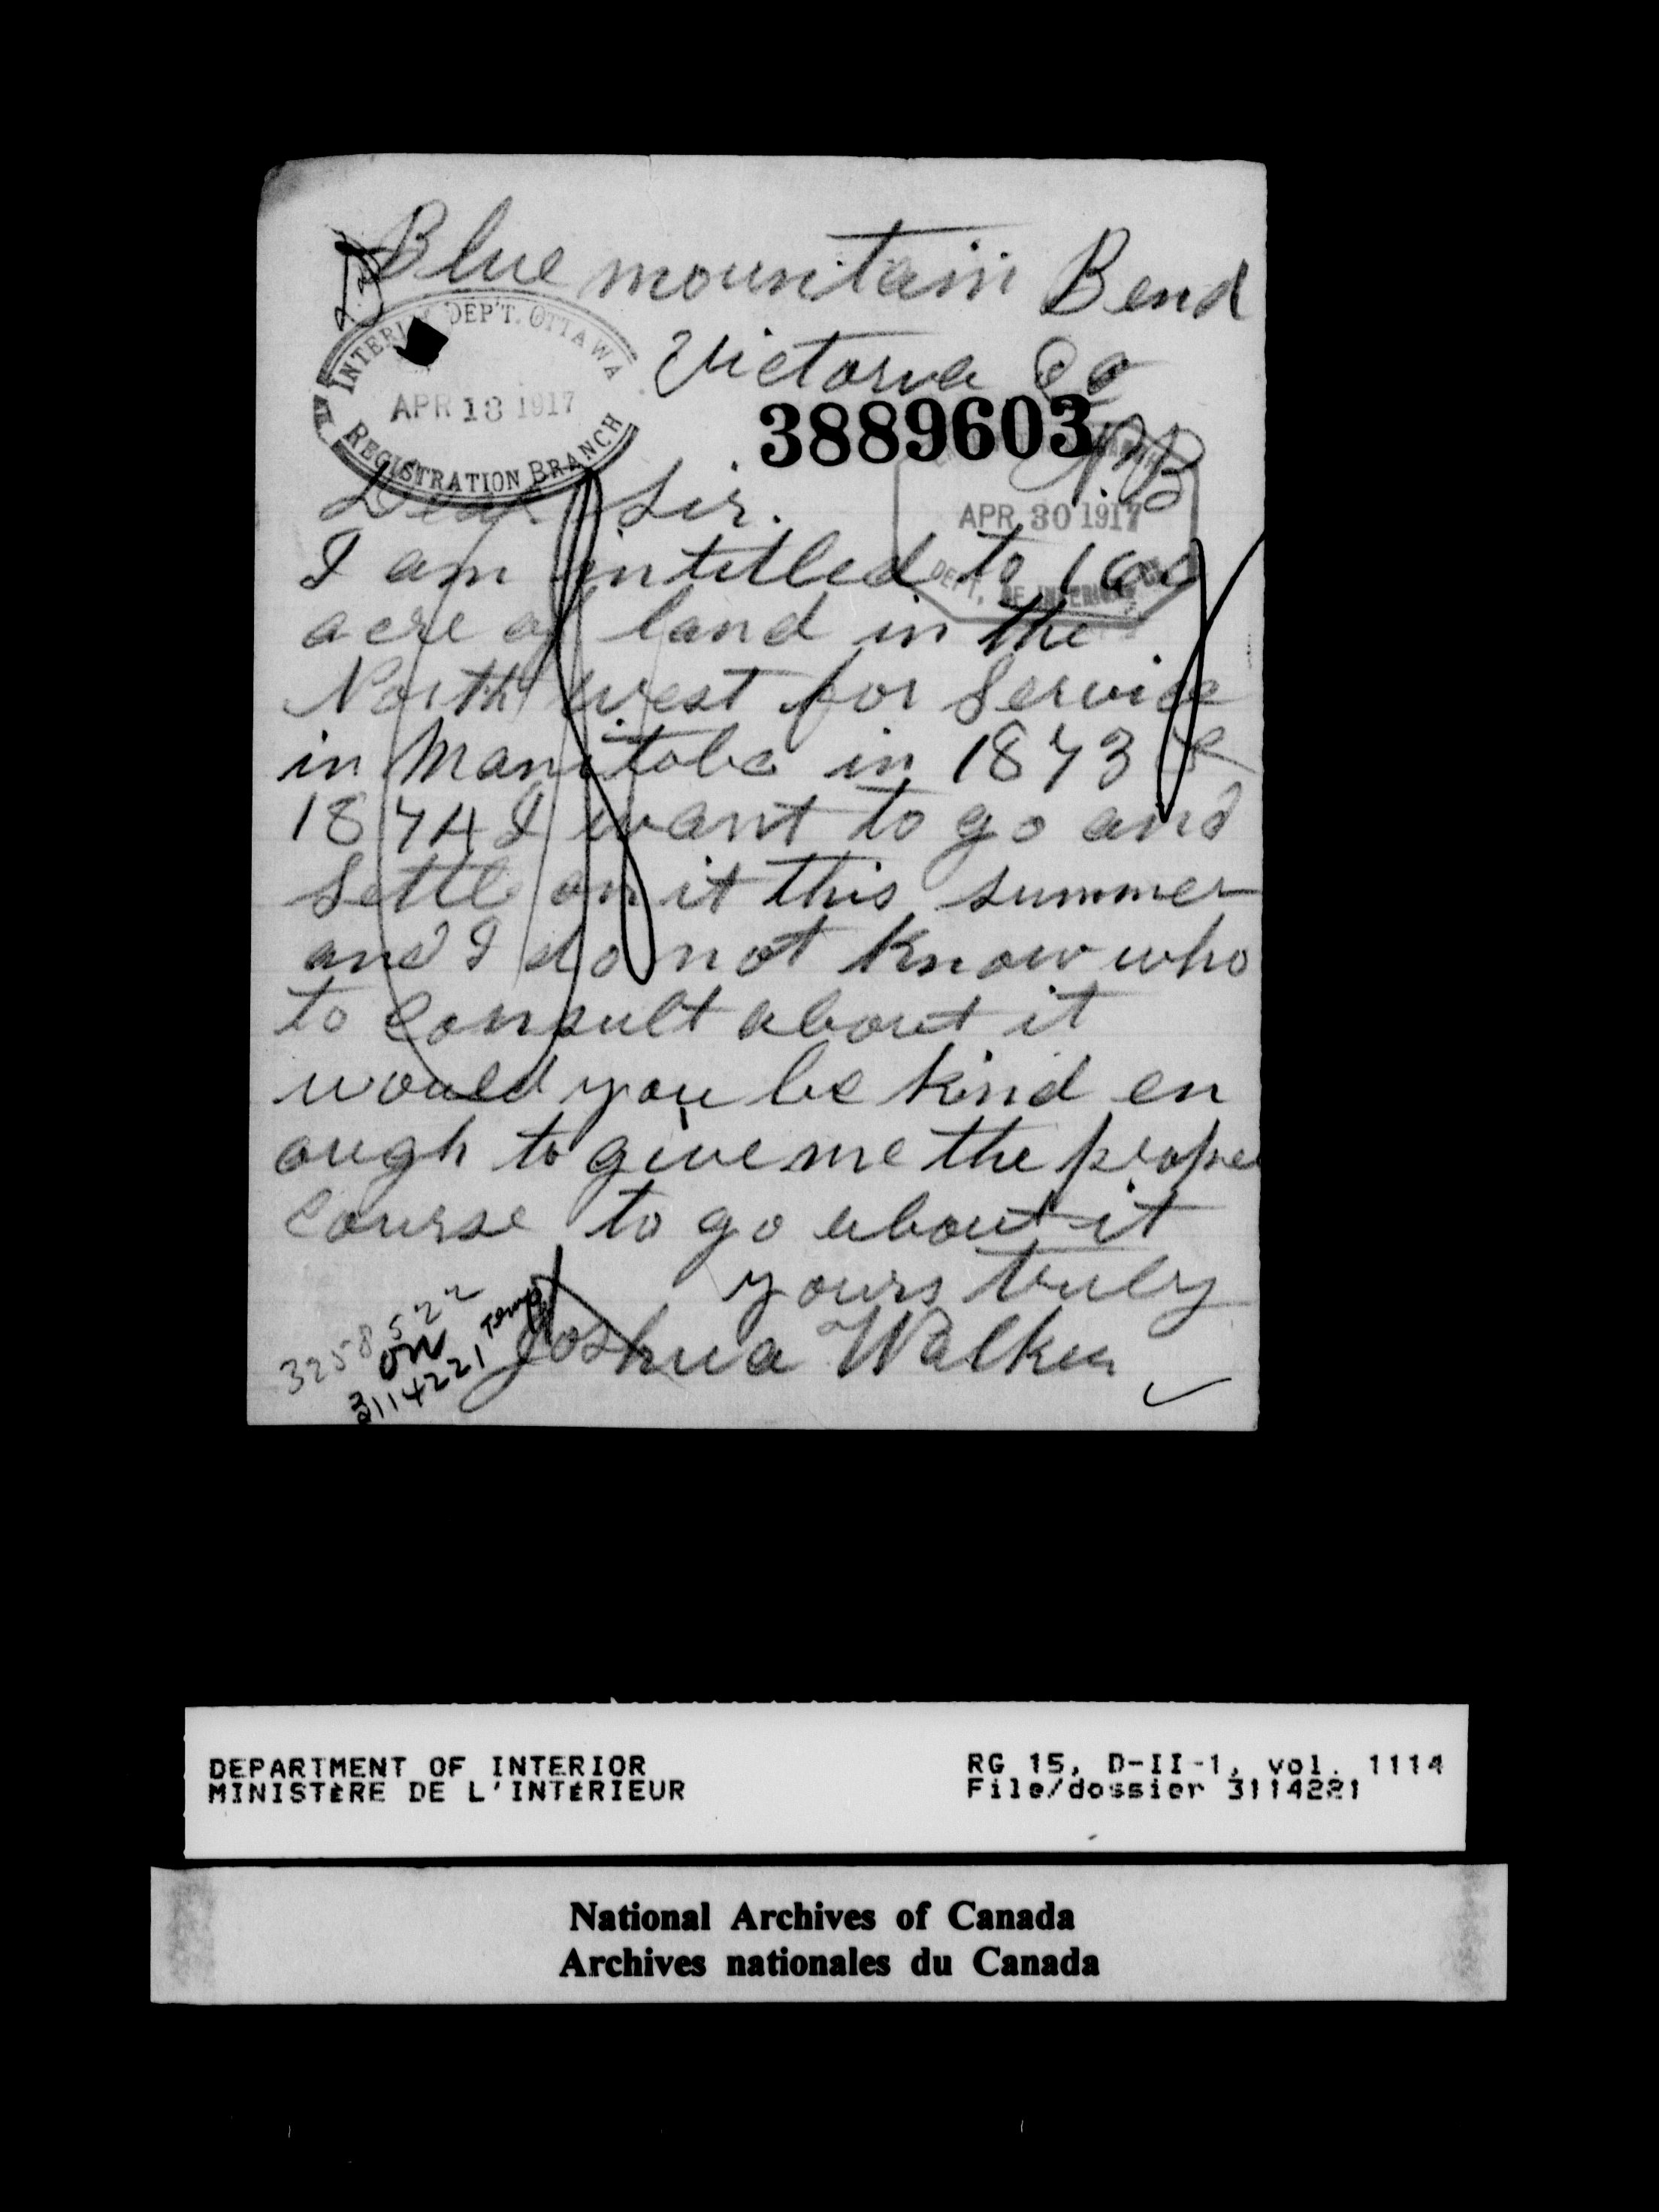 Blue mountain Bend
INTERIOR DEP'T. OTTAWA
APR 18 1917
REGISTRATION BRANCH
Victoria Co
3889603
N.B
APR 30 1917
DEPT. OF INTERIOR
Dear Sir.
I am intitled to 160
acre of land in the
North west for Service
in Manitoba in 1873 &
1874 I want to go and
Settle on it this summer
and I do not know who
to consult about it
would you be kind en
ough to give me the proper
course to go about it
yours truly
Joshua Walker
3258522
on
3114221 Temp
DEPARTMENT OF INTERIOR
MINISTÈRE DE L'INTÉRIEUR
RG 15, D-II-1, vol. 1114
File/dossier 3114221
National Archives of Canada
Archives nationales du Canada